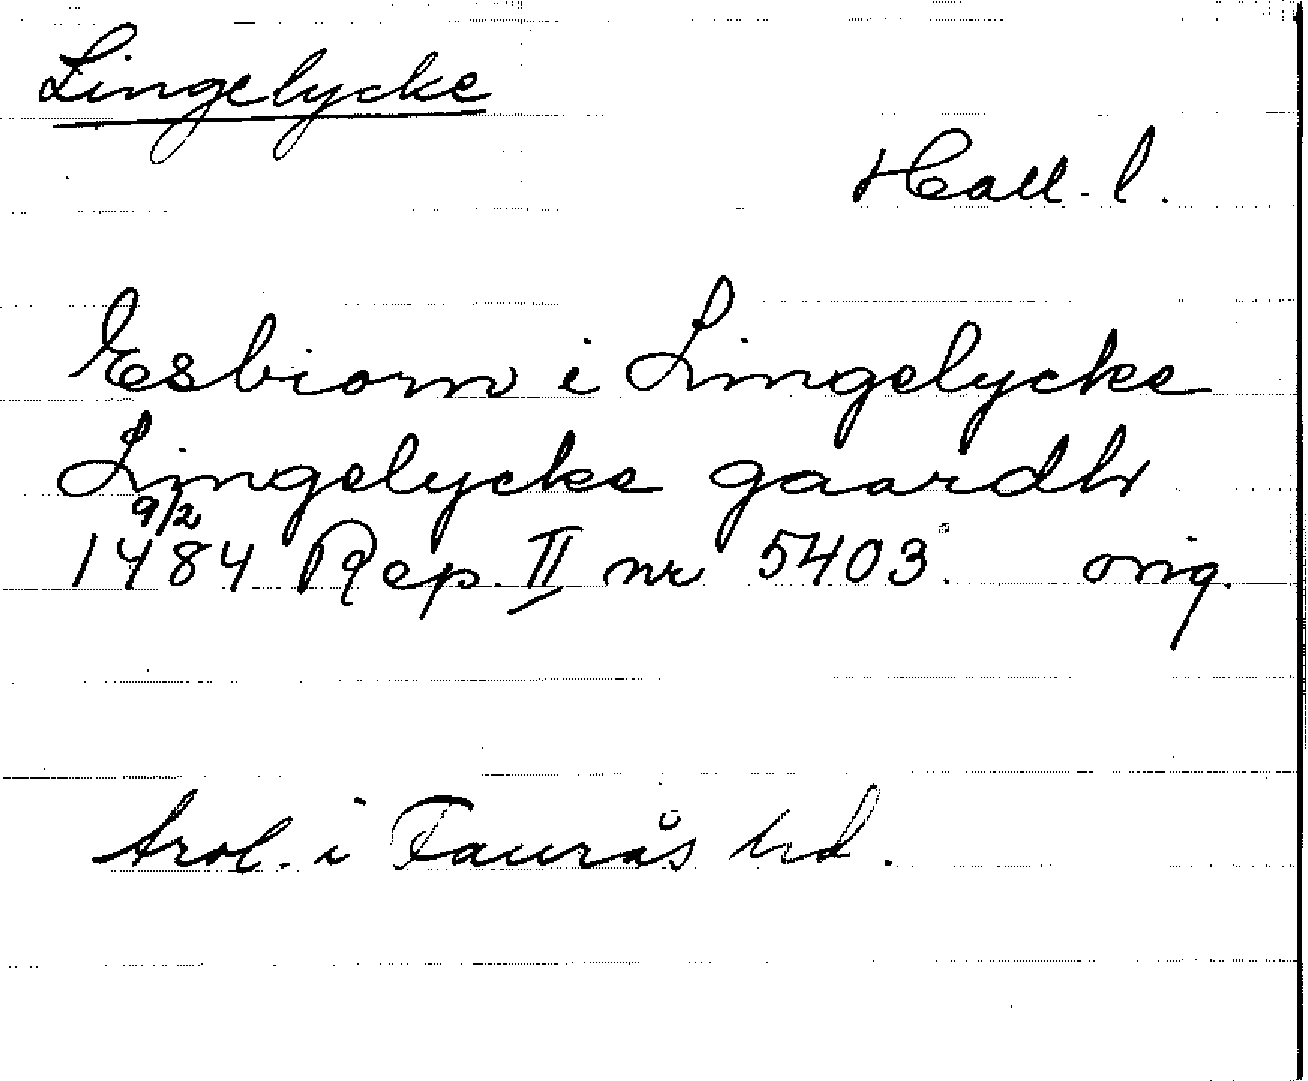 Lingelycke
Hall. l.
Esbiorn i Lingelycke
Lingelycke gaardh
9/2
1484 Rep. II nr 5403. orig.
trol. i Faurås hd.